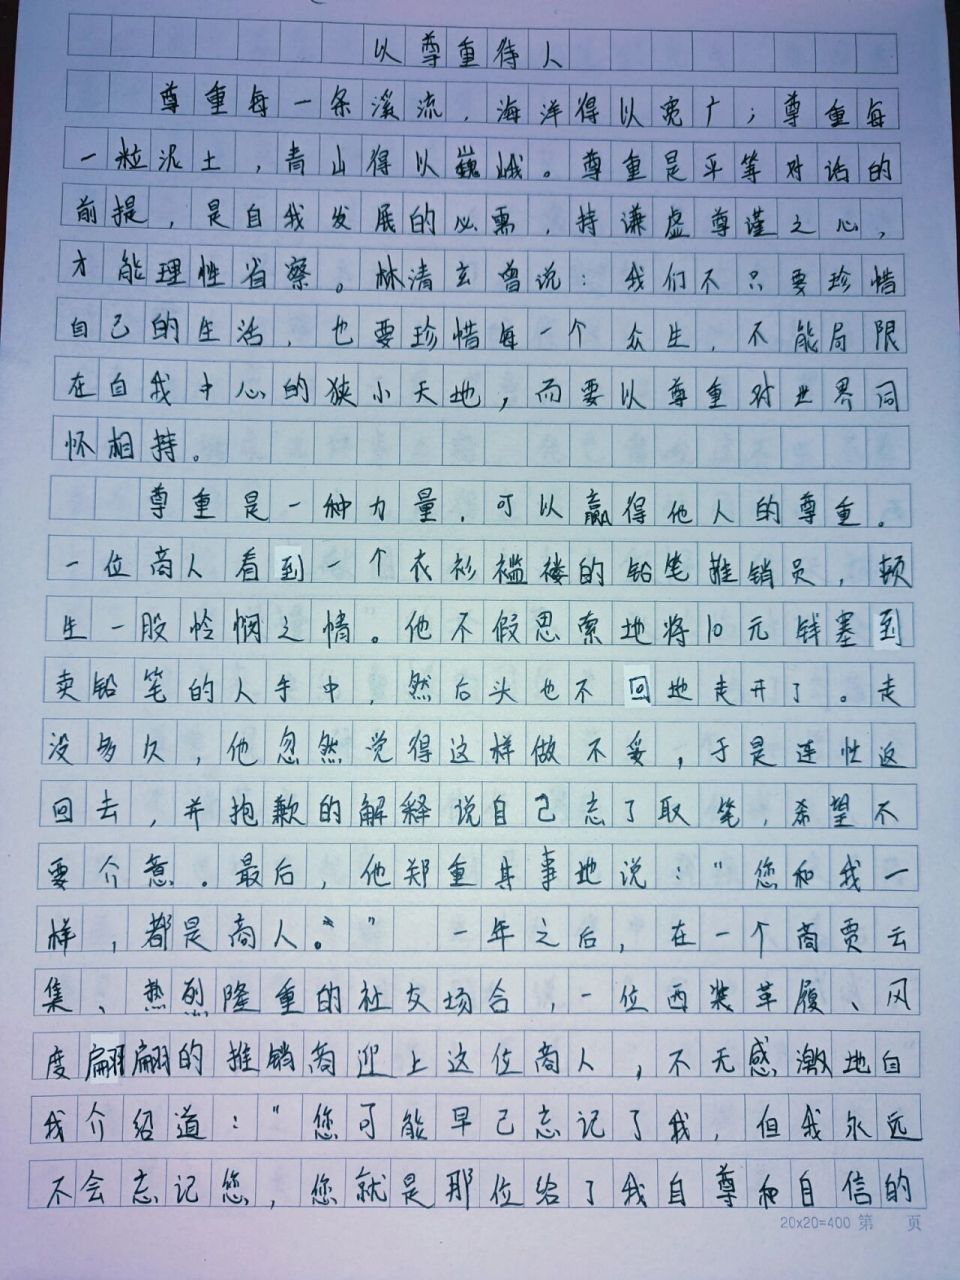 以尊重待人
尊重每一条溪流，海洋得以宽广；尊重每
一粒泥土，青山得以巍峨。尊重是平等对话的
前提，是自我发展的必需，持谦虚尊谨之心，
才能理性省察。林清玄曾说：我们不只要珍惜
自己的生活，也要珍惜每一个众生，不能局限
在自我中心的狭小天地，而要以尊重对世界同
怀相持。
尊重是一种力量，可以赢得他人的尊重。
一位商人看到一个衣衫褴褛的铅笔推销员，顿
生一股怜悯之情。他不假思索地将10元钱塞到
卖铅笔的人手中，然后头也不回地走开了。走
没多久，他忽然觉得这样做不妥，于是连忙返
回去，并抱歉的解释说自己忘了取笔，希望不
要介意。最后，他郑重其事地说："您和我一
样，都是商人。" 一年之后，在一个商贾云
集、热烈隆重的社交场合，一位西装革履、风
度翩翩的推销商迎上这位商人，不无感激地自
我介绍道："您可能早已忘记了我，但我永远
不会忘记您，您就是那位给了我自尊和自信的
20x20=400 第 页